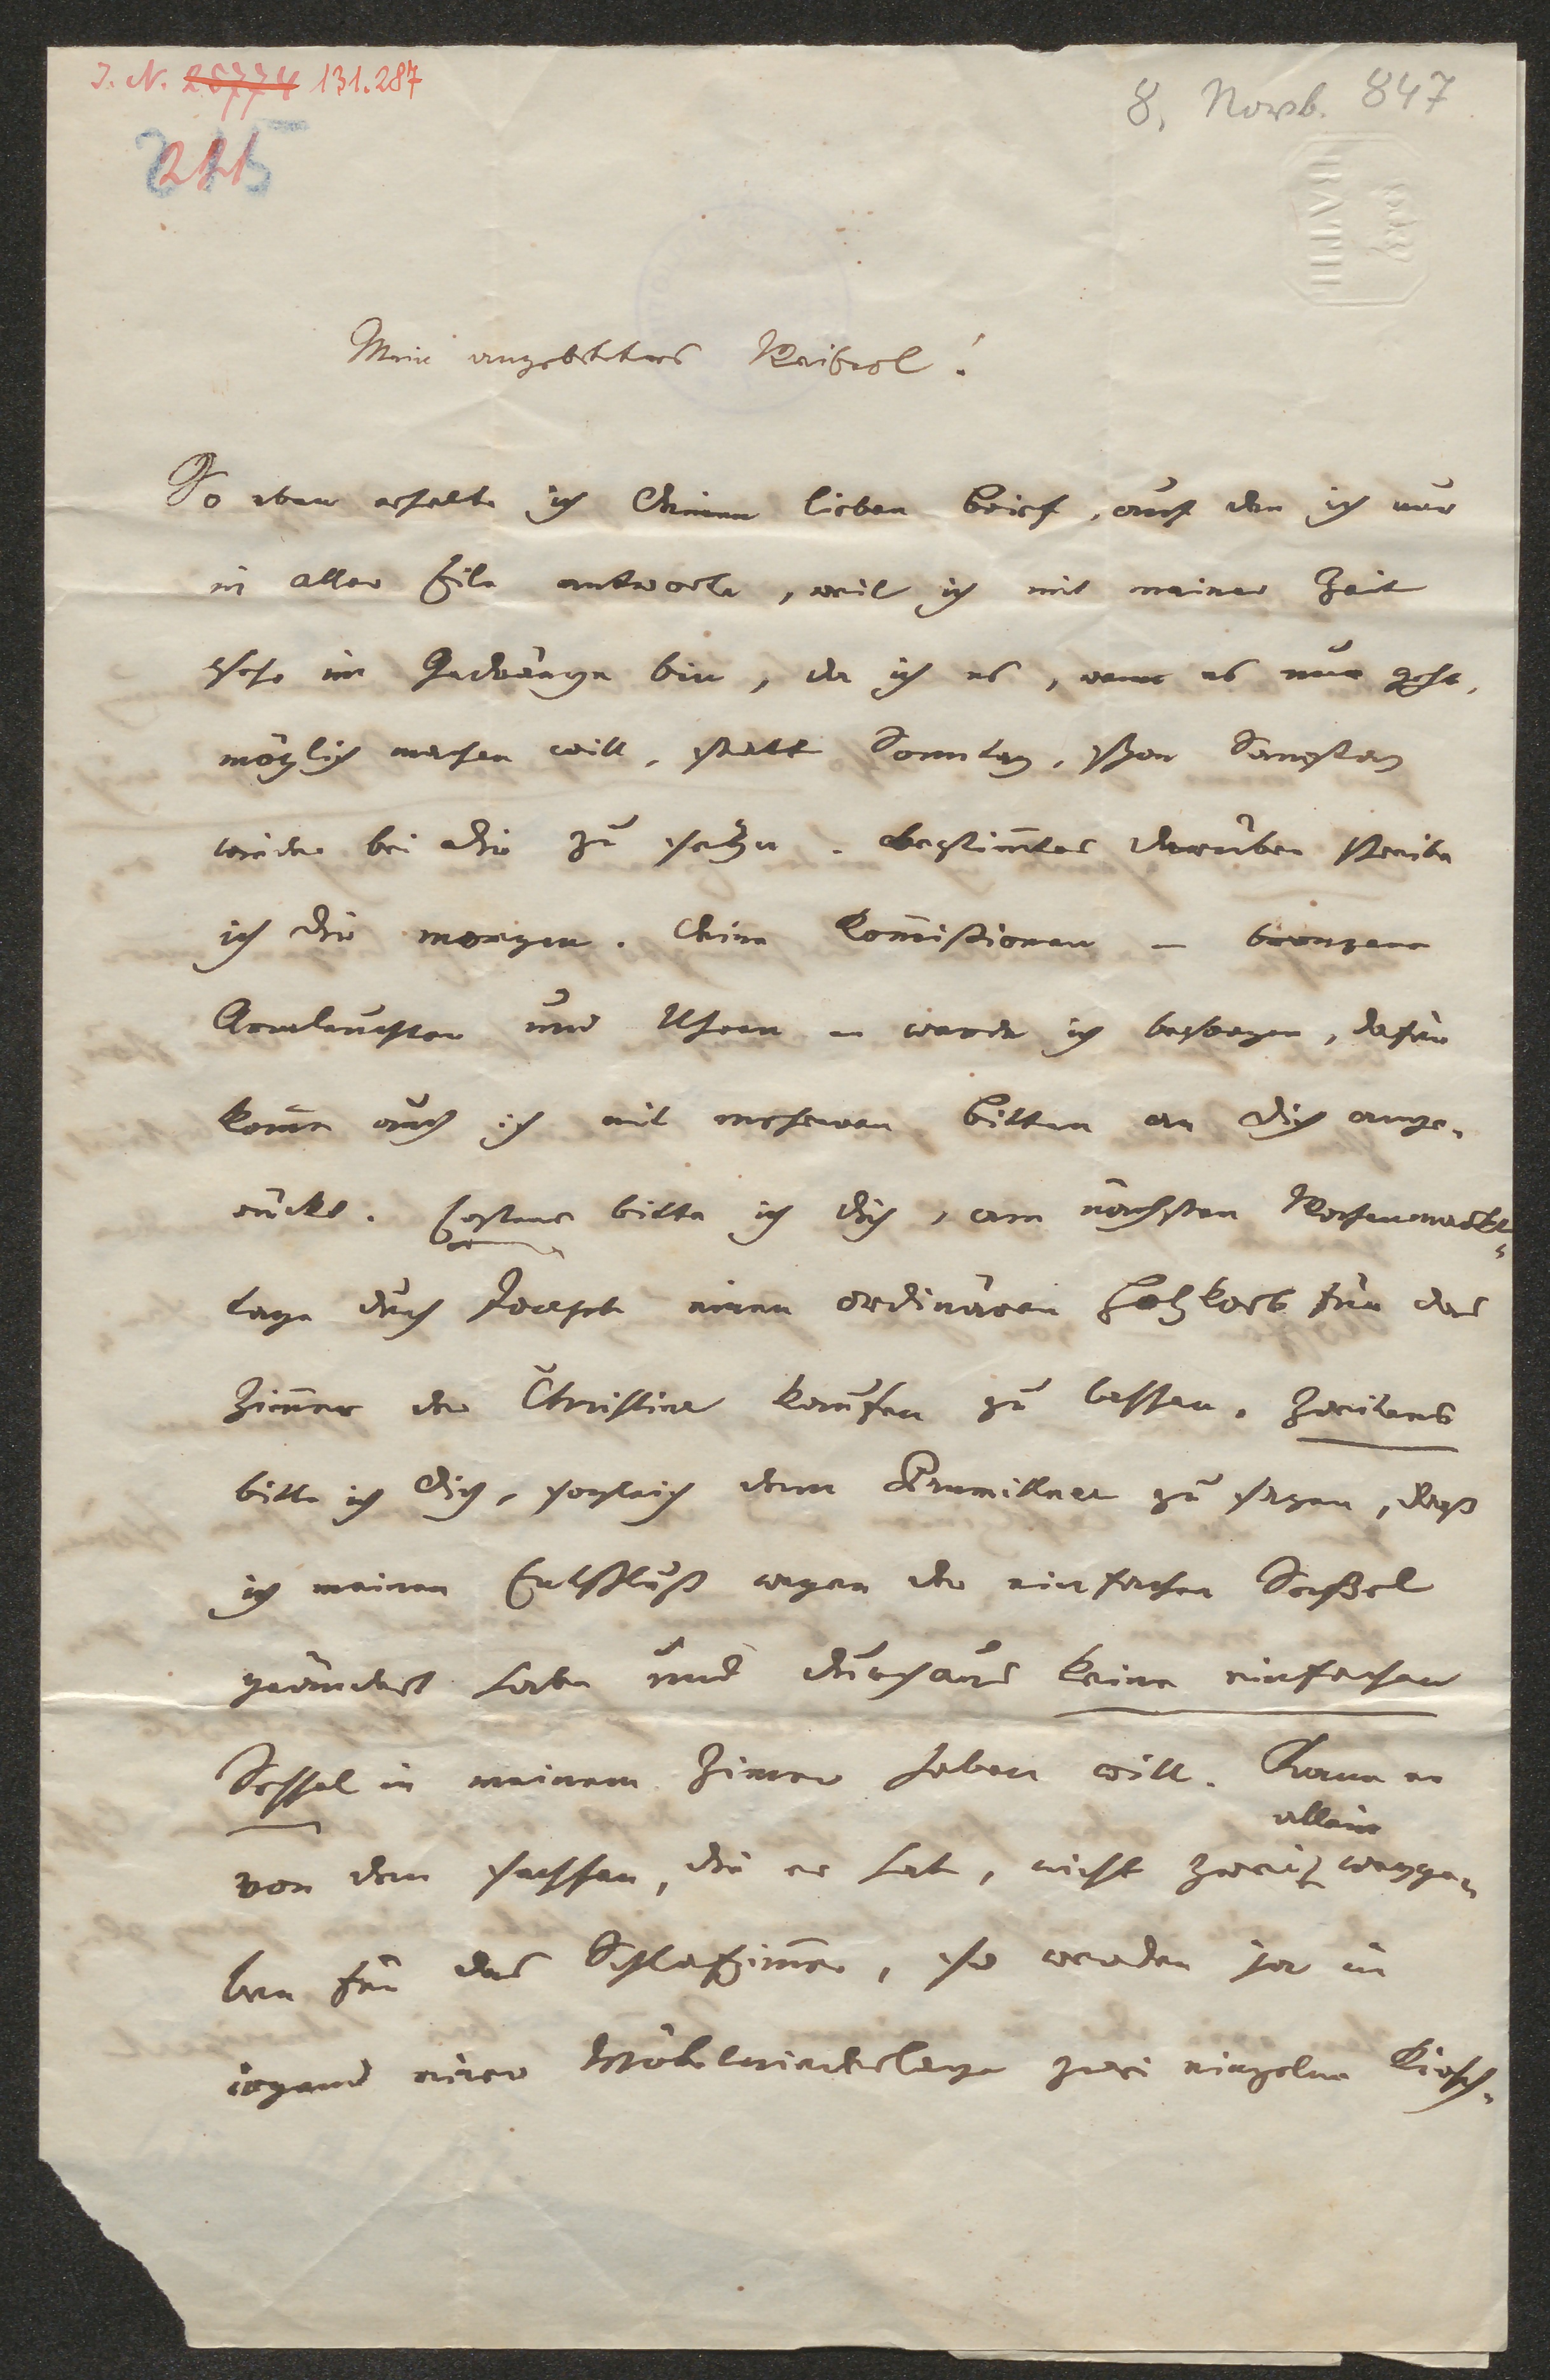 I. N. 25774 131.287
221
8. Novb. 847
BATH
Mein angebethetes Weiberl!
So eben erhalte ich Deinen lieben Brief, auf den ich nur
in aller Eile antworte, weil ich mit meiner Zeit
sehr im Gedränge bin, da ich es, wenn es nur geht,
möglich machen will, statt Sonntag, schon Samstag
wieder bei Dir zu sein. Bestim̄tes darüber schreibe
ich Dir morgen. Deine Kom̄issionen – bronzene
Armleuchter und Uhren – werde ich besorgen, dafür
kom̄e auch ich mit mehreren Bitten an Dich ange-
rückt. Erstens bitte ich Dich, am nächsten Wochenmarkt-
tage durch Joseph einen ordinären Holzkorb für das
Zim̄er der Christine kaufen zu lassen. Zweitens
bitte ich Dich, sogleich dem zu sagen, daß
ich meinen Entschluß wegen der einfachen Sessel
geändert habe und durchaus keine einfachen
Sessel in meinem Zimer haben will. Kann er
von den sechsen, die er hat, nicht zwei allein wegge-
ben für das Schlafzim̄er, so werden ja in
irgend einer Möbelniederlage zwei einzelne Kirsch-